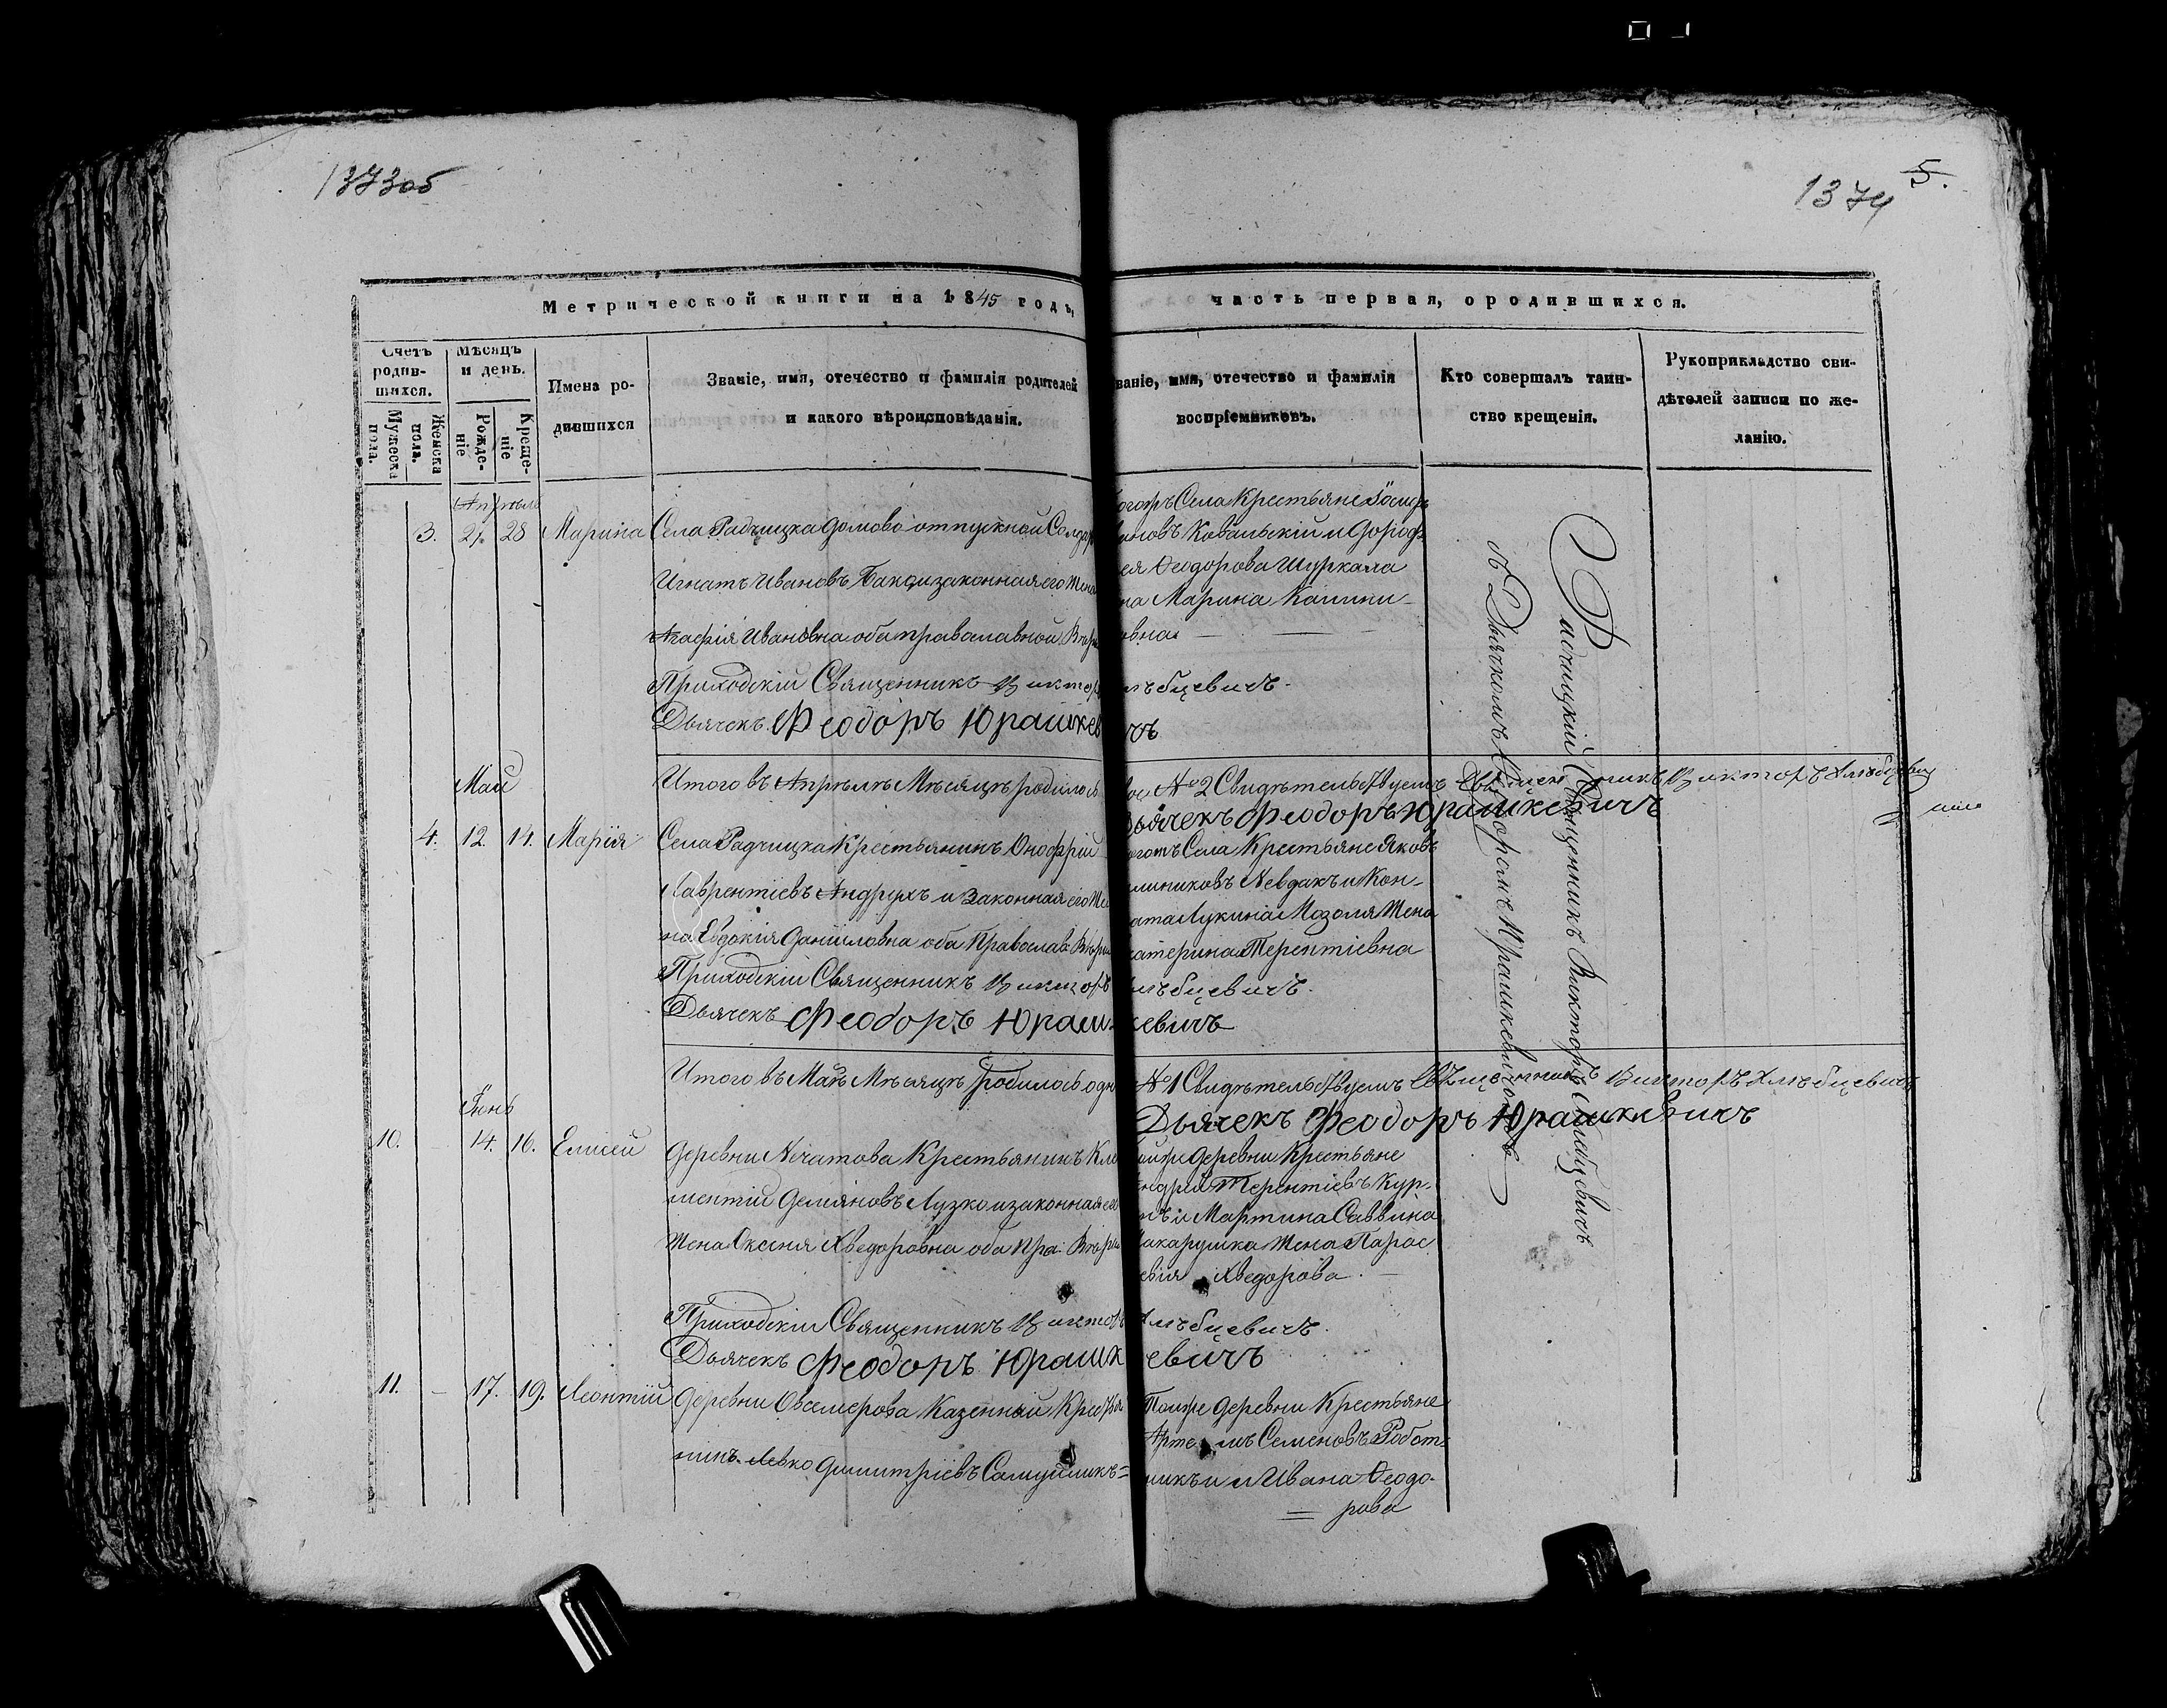 1373об
1374
5.
Метрической книги на 1845 годъ,
часть первая, ородившихся.
Счетъ родив-шихся.
Мужеска пола.
Женска пола.
Мѣсяцъ и день.
Рожде-ніе
Креще-ніе
Имена ро-
дившихся
Званіе, имя, отечество и фамилія родителей
и какого вѣроисповѣданія.
ваніе, имя, отечество и фамилія
воспріемниковъ.
Кто совершалъ таин-
ство крещенія.
Рукоприкладство сви-
дѣтелей записи по же-
ланію.
Апрѣль
3. 21. 28 Марина
Села Радчицка домово отпускной Солда
Игнатъ Ивановъ Бака и законная его жена
Агафія Ивановна оба православной Вѣры
Приходскій Священникъ Виктор
Дьячекъ Феодоръ Юрашкев
Села Крестьяне
ановъ Ковальскій и
ея Ѳеодорова Шуркала
на Марина
овна
лѣбцевичъ.
ичъ
Радчицкій Священникъ Викторъ Хлебцевичъ
съ Дьячкомъ Феодоромъ Юрашкевичомъ
Итого въ Апрѣлѣ Мѣсяцѣ родилося
ое № 2 Свидѣтельствуемъ Священникъ Викторъ Хлѣбцевич
Дьячекъ Феодоръ Юрашкевичъ
Май
4. 12. 14. Марія
Села Радчицка Крестьянинъ Онофрій
Лаврентіевъ Андрухъ и Законная его Же
на Евдокія Даніиловна оба Православ: Вѣры
Приходскій Священникъ Викторъ
Дьячекъ Феодоръ Юраш
огожъ Села Крестьяне Яковъ
линиковъ Невдахъ и Кон-
рата Лукина Мозоля Жена
катерина Терентіевна
лѣбцевичъ.
кевичъ
Итого въ Маѣ Мѣсяцѣ родилось одн
№ 1 Свидѣтельствуемъ Священникъ Викторъ Хлѣбцевичъ
Дьячекъ Феодоръ Юрашкевичъ
Іюнь
10. - 14. 16. Елисей
Деревни Нечатова Крестьянинъ Кли
ментій Деміяновъ Лузко и законная ег
Жена Оксеня Хведоровна оба Пра: Вѣры
Приходскій Священникъ Виктор
Дьячекъ Феодоръ Юрашк
тойже деревни Крестьяне
ндрей Терентіевъ Кур-
и Мартина Саввина
Макарушка Жена Парас
кевія Хведорова.
Хлѣбцевичъ.
евичъ
11. - 17. 19. Леонтій
Деревни Овсемерова Казенный Крестья
нинъ Левко Димитріевъ Самуйликъ =
Тойже деревни Крестьяне
Арте мъ Семеновъ Работ=
никъ и Ивана Ѳеодо-
= рова